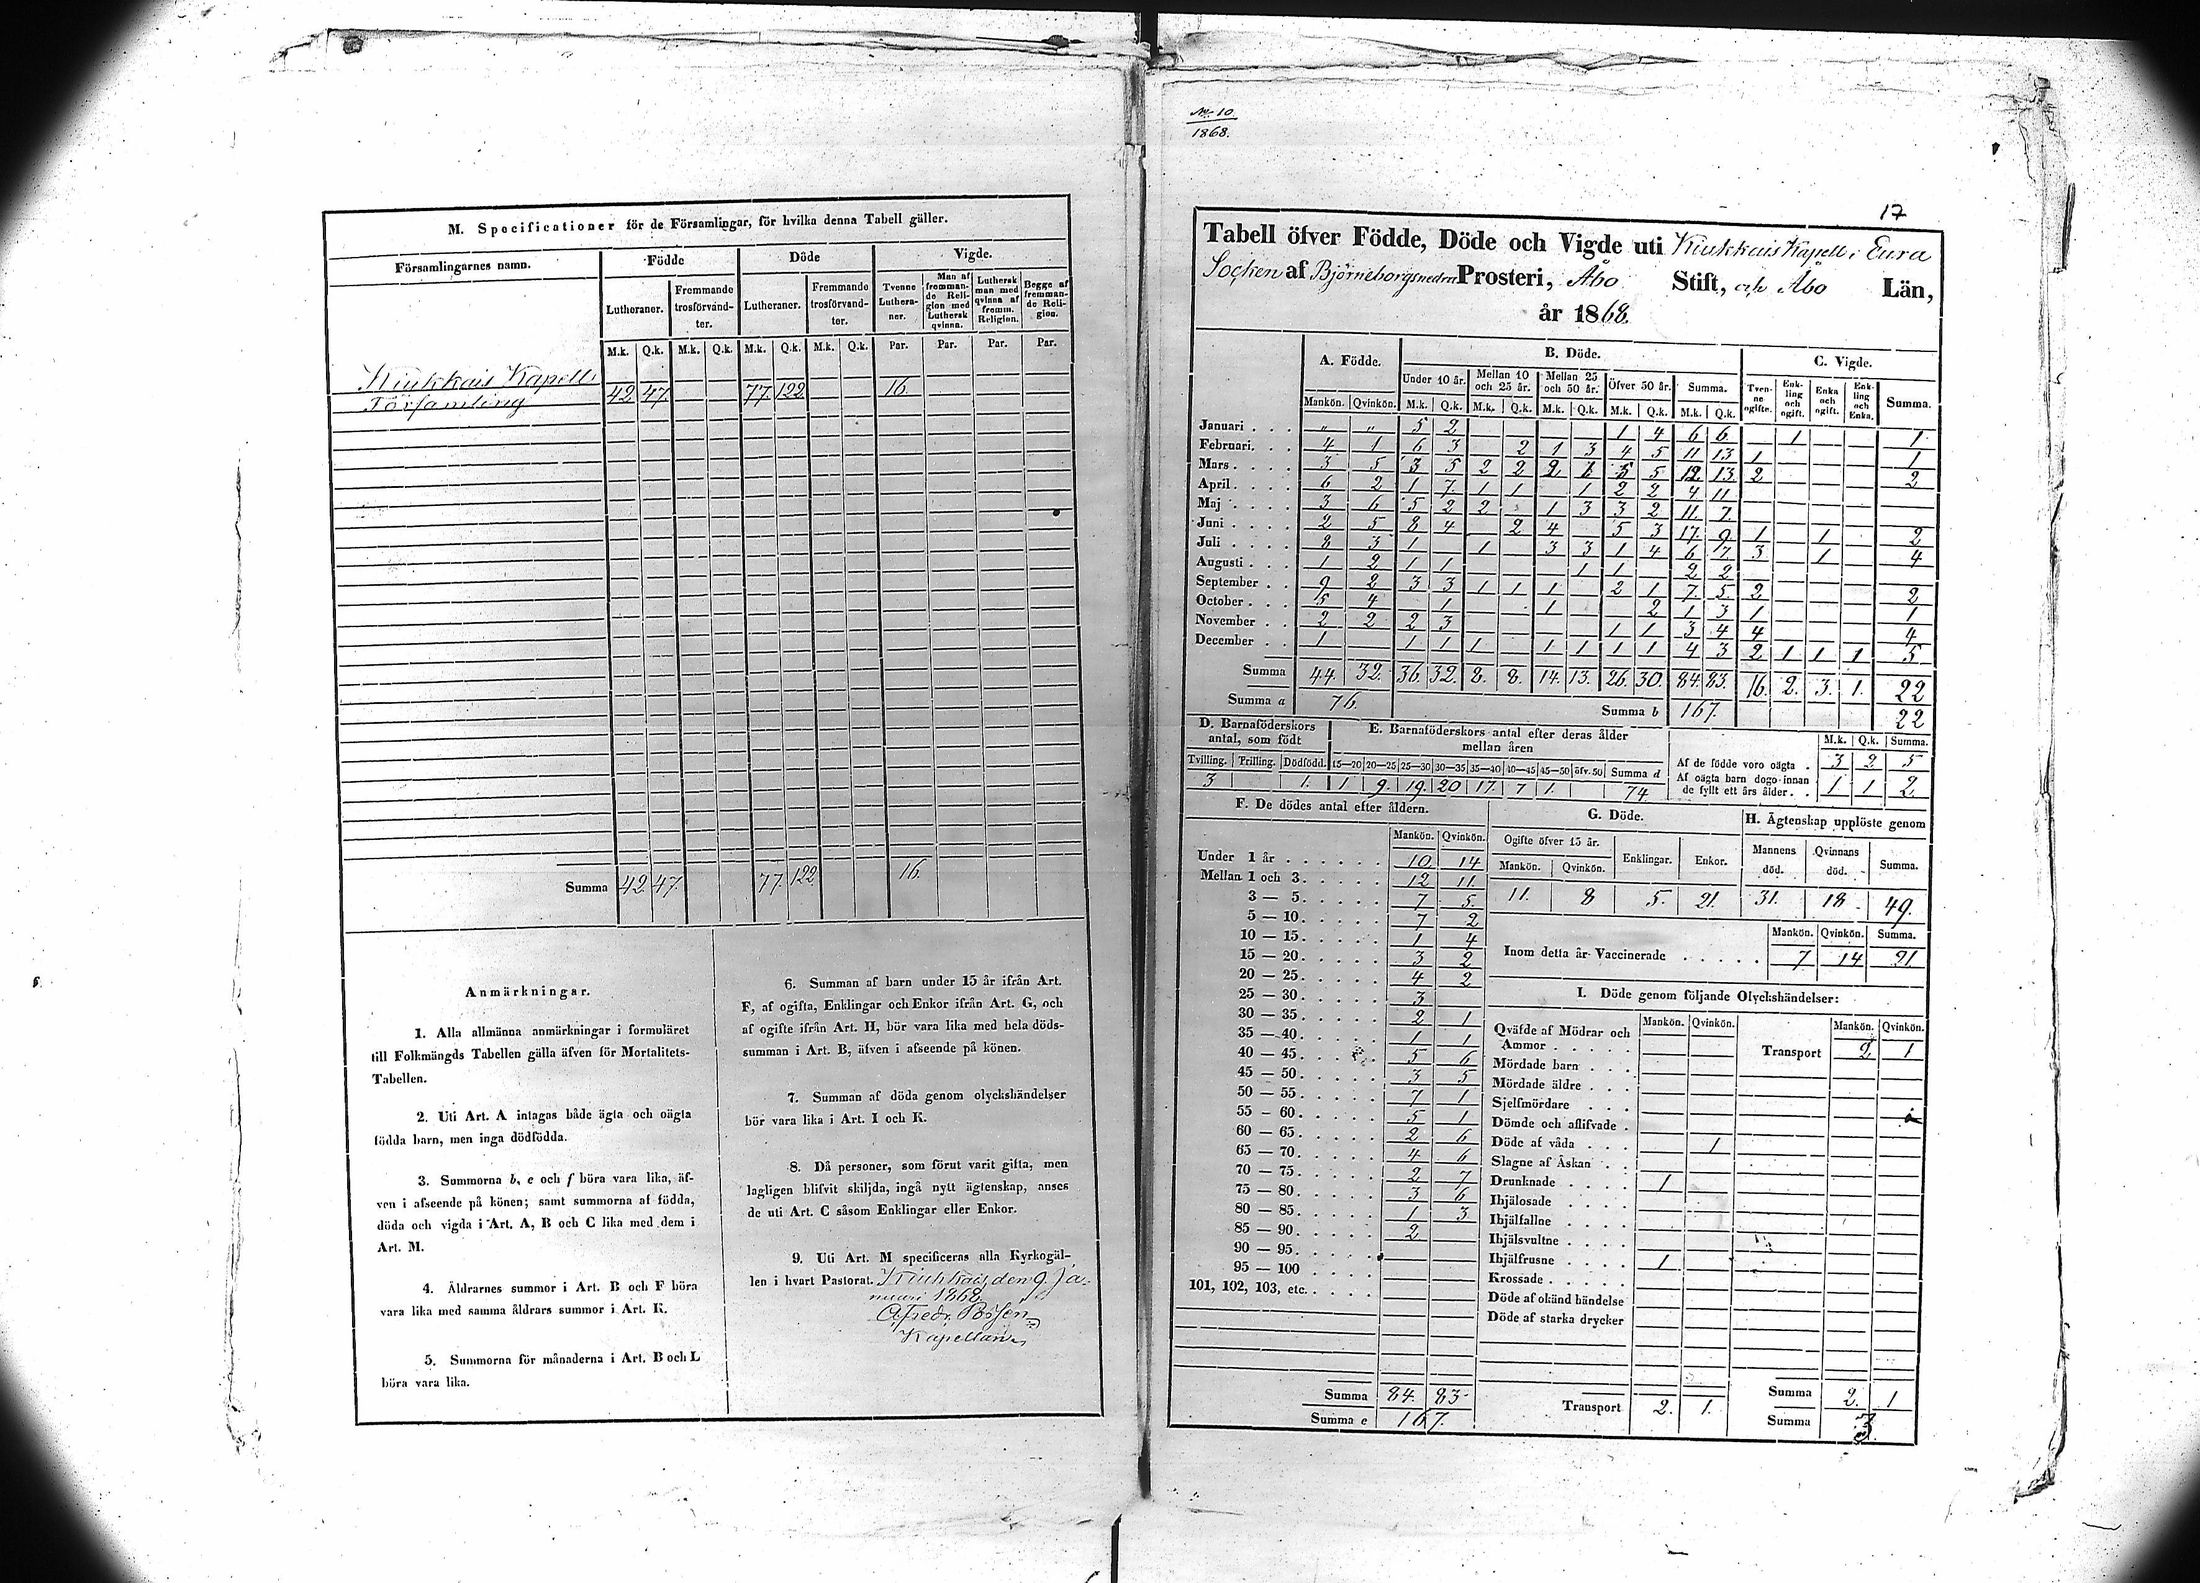 M. Specificationer för de Församlingar, för hvilka denna Tabell gäller.
Församlingarnes namn. Födde Döde Vigde.
Lutheraner. Fremmande trosförvand-ter. Lutheraner. Fremmande trosförvand-ter. Tvenne Luthera-ner. Man af fremman-de Reli-gion med Luthersk qvinna. Luthersk man med qvinna af fremm. Religion. Begge af fremman-de Reli-gion.
M.k. Q.k. M.k. Q.k. M.k. Q.k. M.k. Q.k. Par. Par. Par. Par.
Kiukkais Kapells
Församling 42 47 77 122 16.
Summa 42 47. 77 122 16.
Anmärkningar.
1. Alla allmänna anmärkningar i formuläret
till Folkmängds Tabellen gälla äfven för Mortalitets-
Tabellen.
2. Uti Art. A intagas både ägta och oägta
födda barn, men inga dödfödda.
3. Summorna b, e och f böra vara lika, äf-
ven i afseende på könen; samt summorna af födda,
döda och vigda i Art. A, B och C lika med dem i
Art. M.
4. Åldrarnes summor i Art. B och F böra
vara lika med samma åldrars summor i Art. K.
5. Summorna för månaderna i Art. B och L
böra vara lika.
6. Summan af barn under 15 år ifrån Art.
F, af ogifta, Enklingar och Enkor ifrån Art. G, och
af ogifte ifrån Art. H, bör vara lika med hela döds-
summan i Art. B, äfven i afseende på könen.
7. Summan af döda genom olyckshändelser
bör vara lika i Art. I och K.
8. Då personer, som förut varit gifta, men
lagligen blifvit skiljda, ingå nytt ägtenskap, anses
de uti Art. C såsom Enklingar eller Enkor.
9. Uti Art. M specificeras alla Kyrkogäl-
len i hvart Pastorat. Kiukkais den 9 Ja-
nuari 1868
Kapellan
No 10
1868.
17
Tabell öfver Födde, Döde och Vigde uti Kiukkais Kapell i Eura
Socken af Björneborgs nedra Prosteri, Åbo Stift, och Åbo Län,
år 1868.
A. Födde. B. Döde. C. Vigde.
Under 10 år. Mellan 10 och 25 år. Mellan 25 och 50 år. Öfver 50 år. Summa. Tven-ne ogifte. Enk-ling och ogift. Enka och ogift. Enk-ling och Enka. Summa.
Mankön. Qvinkön. M.k. Q.k. M.k. Q.k. M.k. Q.k. M.k. Q.k. M.k. Q.k.
Januari . . . " " 5 2 1 4 6 6 1 1
Februari. . . 4 1 6 3 2 1 3 4 5 11 13 1 1
Mars . . . . 3 5 3 5 2 2 2 1 5 5 12 13 2 2
April . . . . 6 2 1 7 1 1 1 2 2 4 11
Maj . . . . 3 6 5 2 2 1 3 3 2 11 7
Juni . . . . 2 5 8 4 2 4 5 3 17 9 1 1 2
Juli . . . . 8 3 1 1 3 3 1 4 6 7 3 1 4
Augusti . . . 1 2 1 1 1 1 2 2
September . . 9 2 3 3 1 1 1 2 1 7 5 2 2
October . . . 5 4 1 1 2 1 3 1 1
November . . 2 2 2 3 1 1 3 4 4 4
December . . 1 1 1 1 1 1 1 1 4 3 2 1 1 1 5
Summa 44. 32. 36. 32. 8. 8. 14. 13. 26. 30. 84. 83. 16. 2. 3. 1. 22
Summa a 76. Summa b 167. 22
D. Barnaföderskors antal, som födt
Tvilling. Trilling. Dödfödd.
3 1.
E. Barnaföderskors antal efter deras ålder mellan åren
15—20 20—25 25—30 30—35 35—40 40—45 45—50 öfv. 50 Summa d
1 9. 19. 20 17. 7 1. 74
M.k. Q.k. Summa.
Af de födde voro oägta . 3 2 5
Af oägta barn dogo innan
de fyllt ett års ålder . . 1 1 2.
F. De dödes antal efter åldern.
Mankön. Qvinkön.
Under 1 år . . . . . . 10 14
Mellan 1 och 3 . . . . . 12 11.
3 — 5. . . . . 7 5.
5 — 10. . . . . 7 2
10 — 15. . . . . 1 4
15 — 20. . . . . 3 2
20 — 25. . . . . 4 2
25 — 30. . . . . 3
30 — 35. . . . . 2 1
35 — 40. . . . . 1 1
40 — 45. . . . . 5 6
45 — 50. . . . . 3 5
50 — 55. . . . . 7 1
55 — 60. . . . . 5 1
60 — 65. . . . . 2 6
65 — 70. . . . . 4 6
70 — 75. . . . . 2 7
75 — 80. . . . . 3 6
80 — 85. . . . . 1 3
85 — 90. . . . . 2
90 — 95. . . . .
95 — 100 . . . .
101, 102, 103, etc. . . . .
Summa 84. 83
Summa e 167.
G. Döde.
Ogifte öfver 15 år. Enklingar. Enkor.
Mankön. Qvinkön.
11. 8 5. 21.
H. Ägtenskap upplöste genom
Mannens död. Qvinnans död. Summa.
31. 18 49.
Mankön. Qvinkön. Summa.
Inom detta år Vaccinerade . . . . . 7 14 21
I. Döde genom följande Olyckshändelser:
Mankön. Qvinkön. Mankön. Qvinkön.
Qväfde af Mödrar och
Ammor . . . . . Transport 2 1
Mördade barn . . .
Mördade äldre . . .
Sjelfmördare . . .
Dömde och aflifvade .
Döde af våda . . . 1
Slagne af Åskan . .
Drunknade . . . . 1
Ihjälosade . . . .
Ihjälfallne . . . .
Ihjälsvultne . . . .
Ihjälfrusne . . . . 1
Krossade . . . . .
Döde af okänd händelse
Döde af starka drycker
Transport 2. 1. Summa 2. 1
Summa 3.